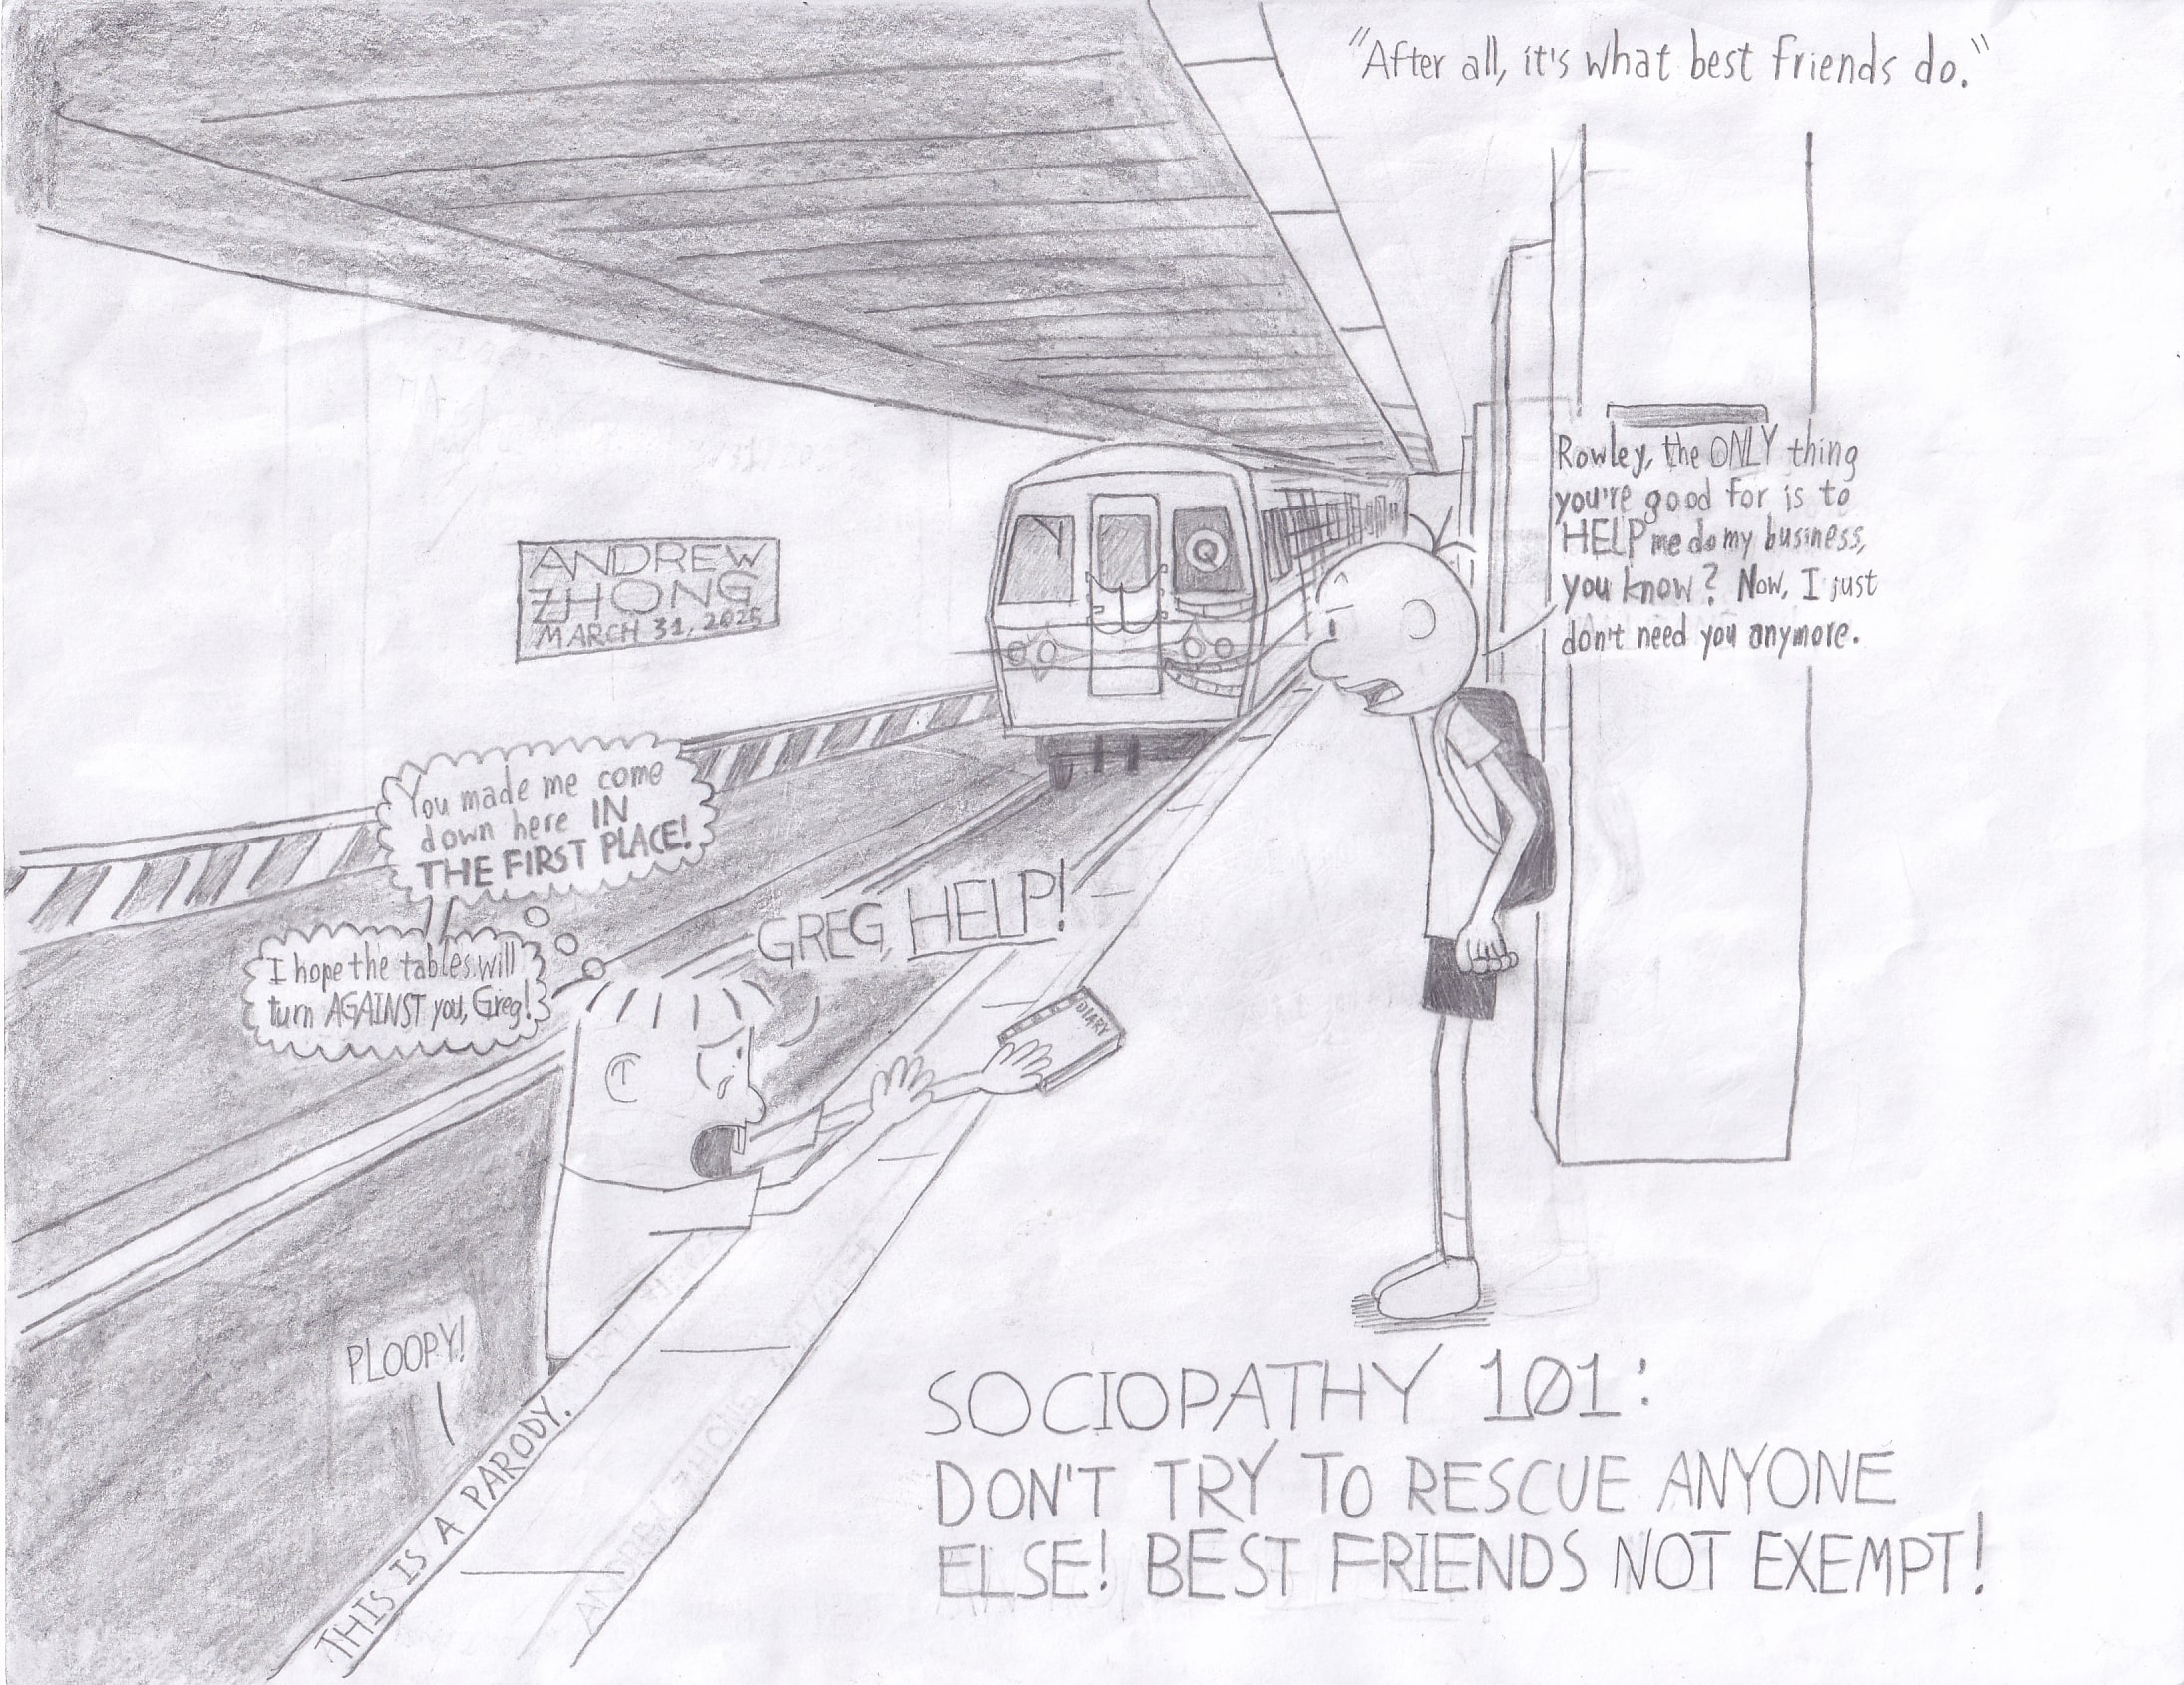 "After all, it's what best friends do."
Rowley, the ONLY thing
you're good for is to
HELP me do my business,
you know? Now, I just
don't need you anymore.
Q
ANDREW
ZHONG
MARCH 31, 2025
You made me come
down here IN
THE FIRST PLACE!
I hope the tables will
turn AGAINST you, Greg!
GREG, HELP!
DIARY
PLOOPY!
THIS IS A PARODY.
SOCIOPATHY 101:
DON'T TRY TO RESCUE ANYONE
ELSE! BEST FRIENDS NOT EXEMPT!